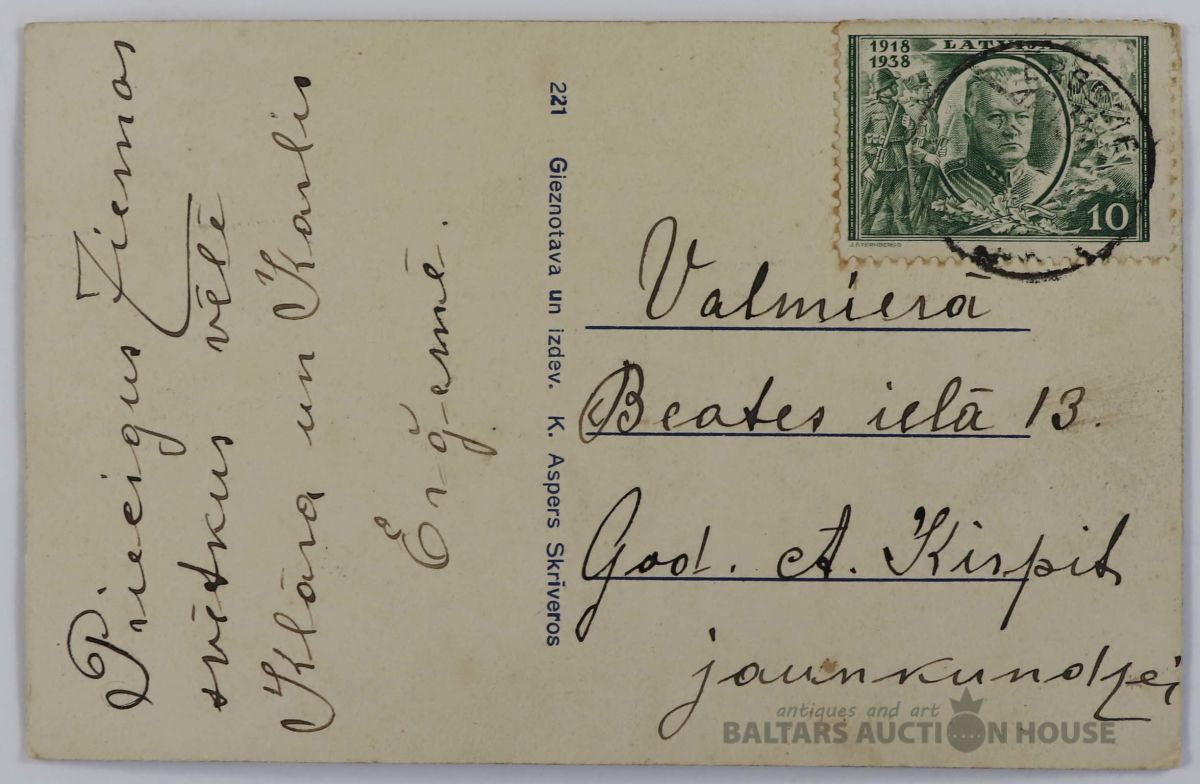 Priecigus Ziemas
svētkus vēlē
Klāra un Karlis
Ērģemē.
221 Gieznotava un izdev. K. Aspers Skrīveros
1918
1938
LATVIJA
10
J. ŠTERNBERGS
Valmierā
Beates ielā 13.
God. A. Kirpit
jaunkundzei
antiques and art
BALTARS AUCTION HOUSE